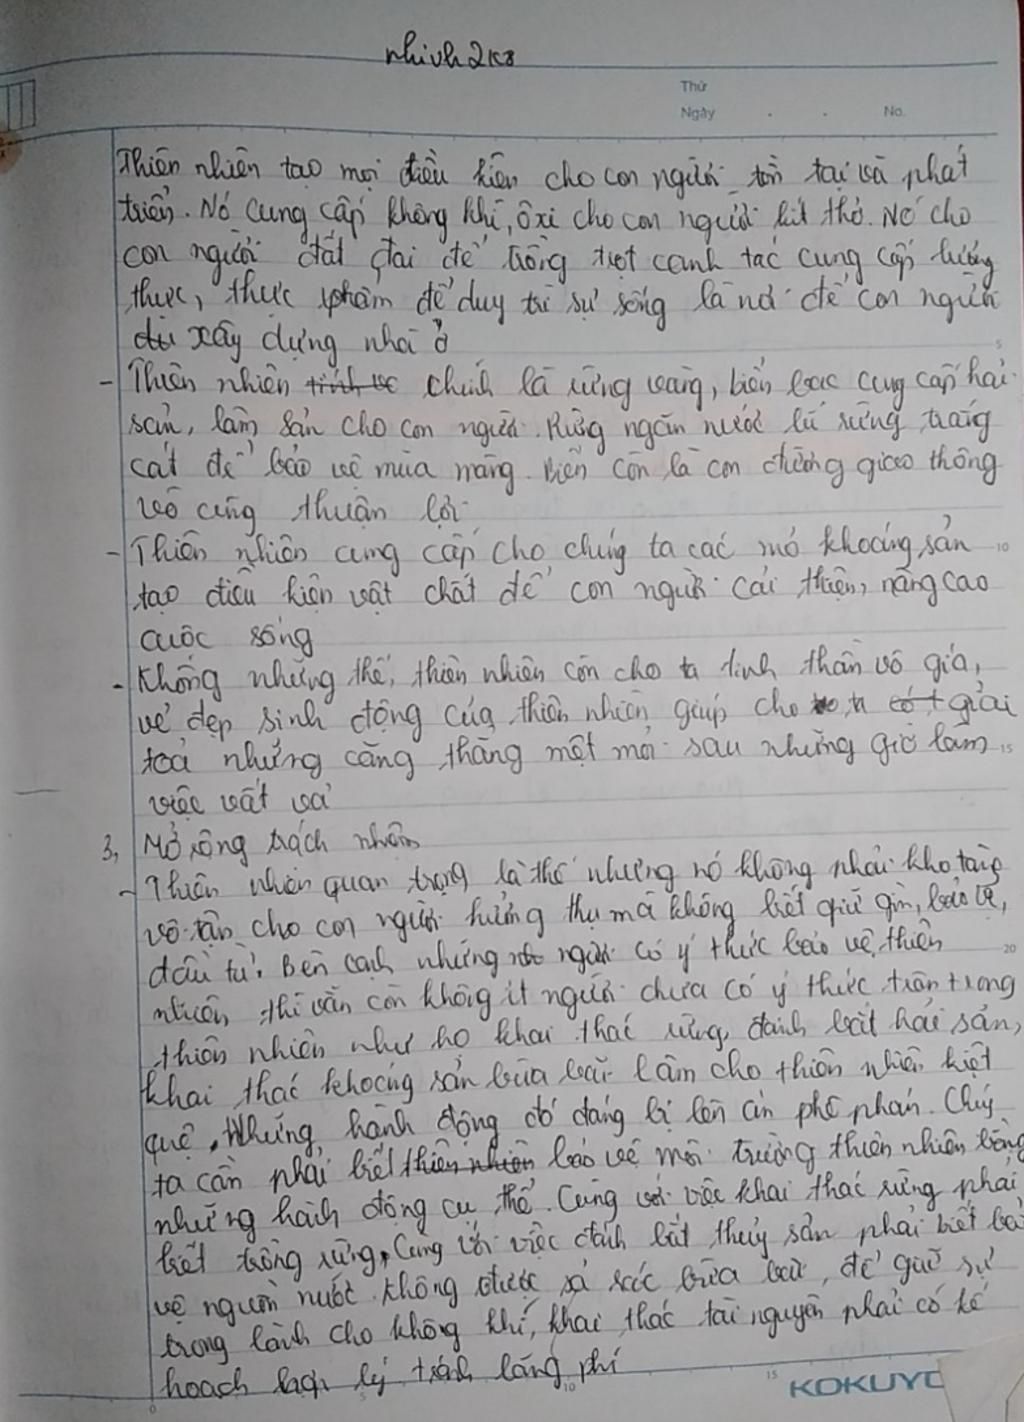 nhivh2k8
Thứ
Ngày . . No.
Thiên nhiên tạo mọi điều kiện cho con người tồn tại và phát
triển. Nó cung cấp không khí, ôxi cho con người hít thở. Nó cho
con người đất đai để trồng trọt canh tác cung cấp lương
thực, thực phẩm để duy trì sự sống là nơi để con người
xây dựng nhà ở
- Thiên nhiên chính là rừng vàng, biển bạc cung cấp hải
sản, lâm sản cho con người. Rừng ngăn nước lũ rừng, trắng
cát để bảo vệ mùa màng. Biển còn là con đường giao thông
vô cùng thuận lợi
- Thiên nhiên cung cấp cho chúng ta các mỏ khoáng sản 10
tạo điều kiện vật chất để con người cải thiện, nâng cao
cuộc sống
- Không những thế, thiên nhiên còn cho ta tinh thần vô giá,
vẻ đẹp sinh động của thiên nhiên giúp cho ta giải
toả những căng thẳng mệt mỏi sau những giờ làm 15
việc vất vả
3, Mở rộng trách nhiệm
- Thiên nhiên quan trọng là thế nhưng nó không phải kho tàng
vô tận cho con người hưởng thụ mà không biết giữ gìn, bảo vệ,
đầu tư. Bên cạnh những người có ý thức bảo vệ thiên 20
nhiên thì vẫn còn không ít người chưa có ý thức trân trọng
thiên nhiên như họ khai thác rừng, đánh bắt hải sản,
khai thác khoáng sản bừa bãi làm cho thiên nhiên kiệt
quệ. Những hành động đó đáng bị lên án phê phán. Chúng
ta cần phải biết bảo vệ môi trường thiên nhiên bằng
những hành động cụ thể. Cùng với việc khai thác rừng phải
biết trồng rừng. Cùng với việc đánh bắt thủy sản phải biết bảo
vệ nguồn nước. không được xả rác bừa bãi, để giữ sự
trong lành cho không khí, khai thác tài nguyên phải có kế
hoạch hợp lý tránh lãng phí
KOKUYO